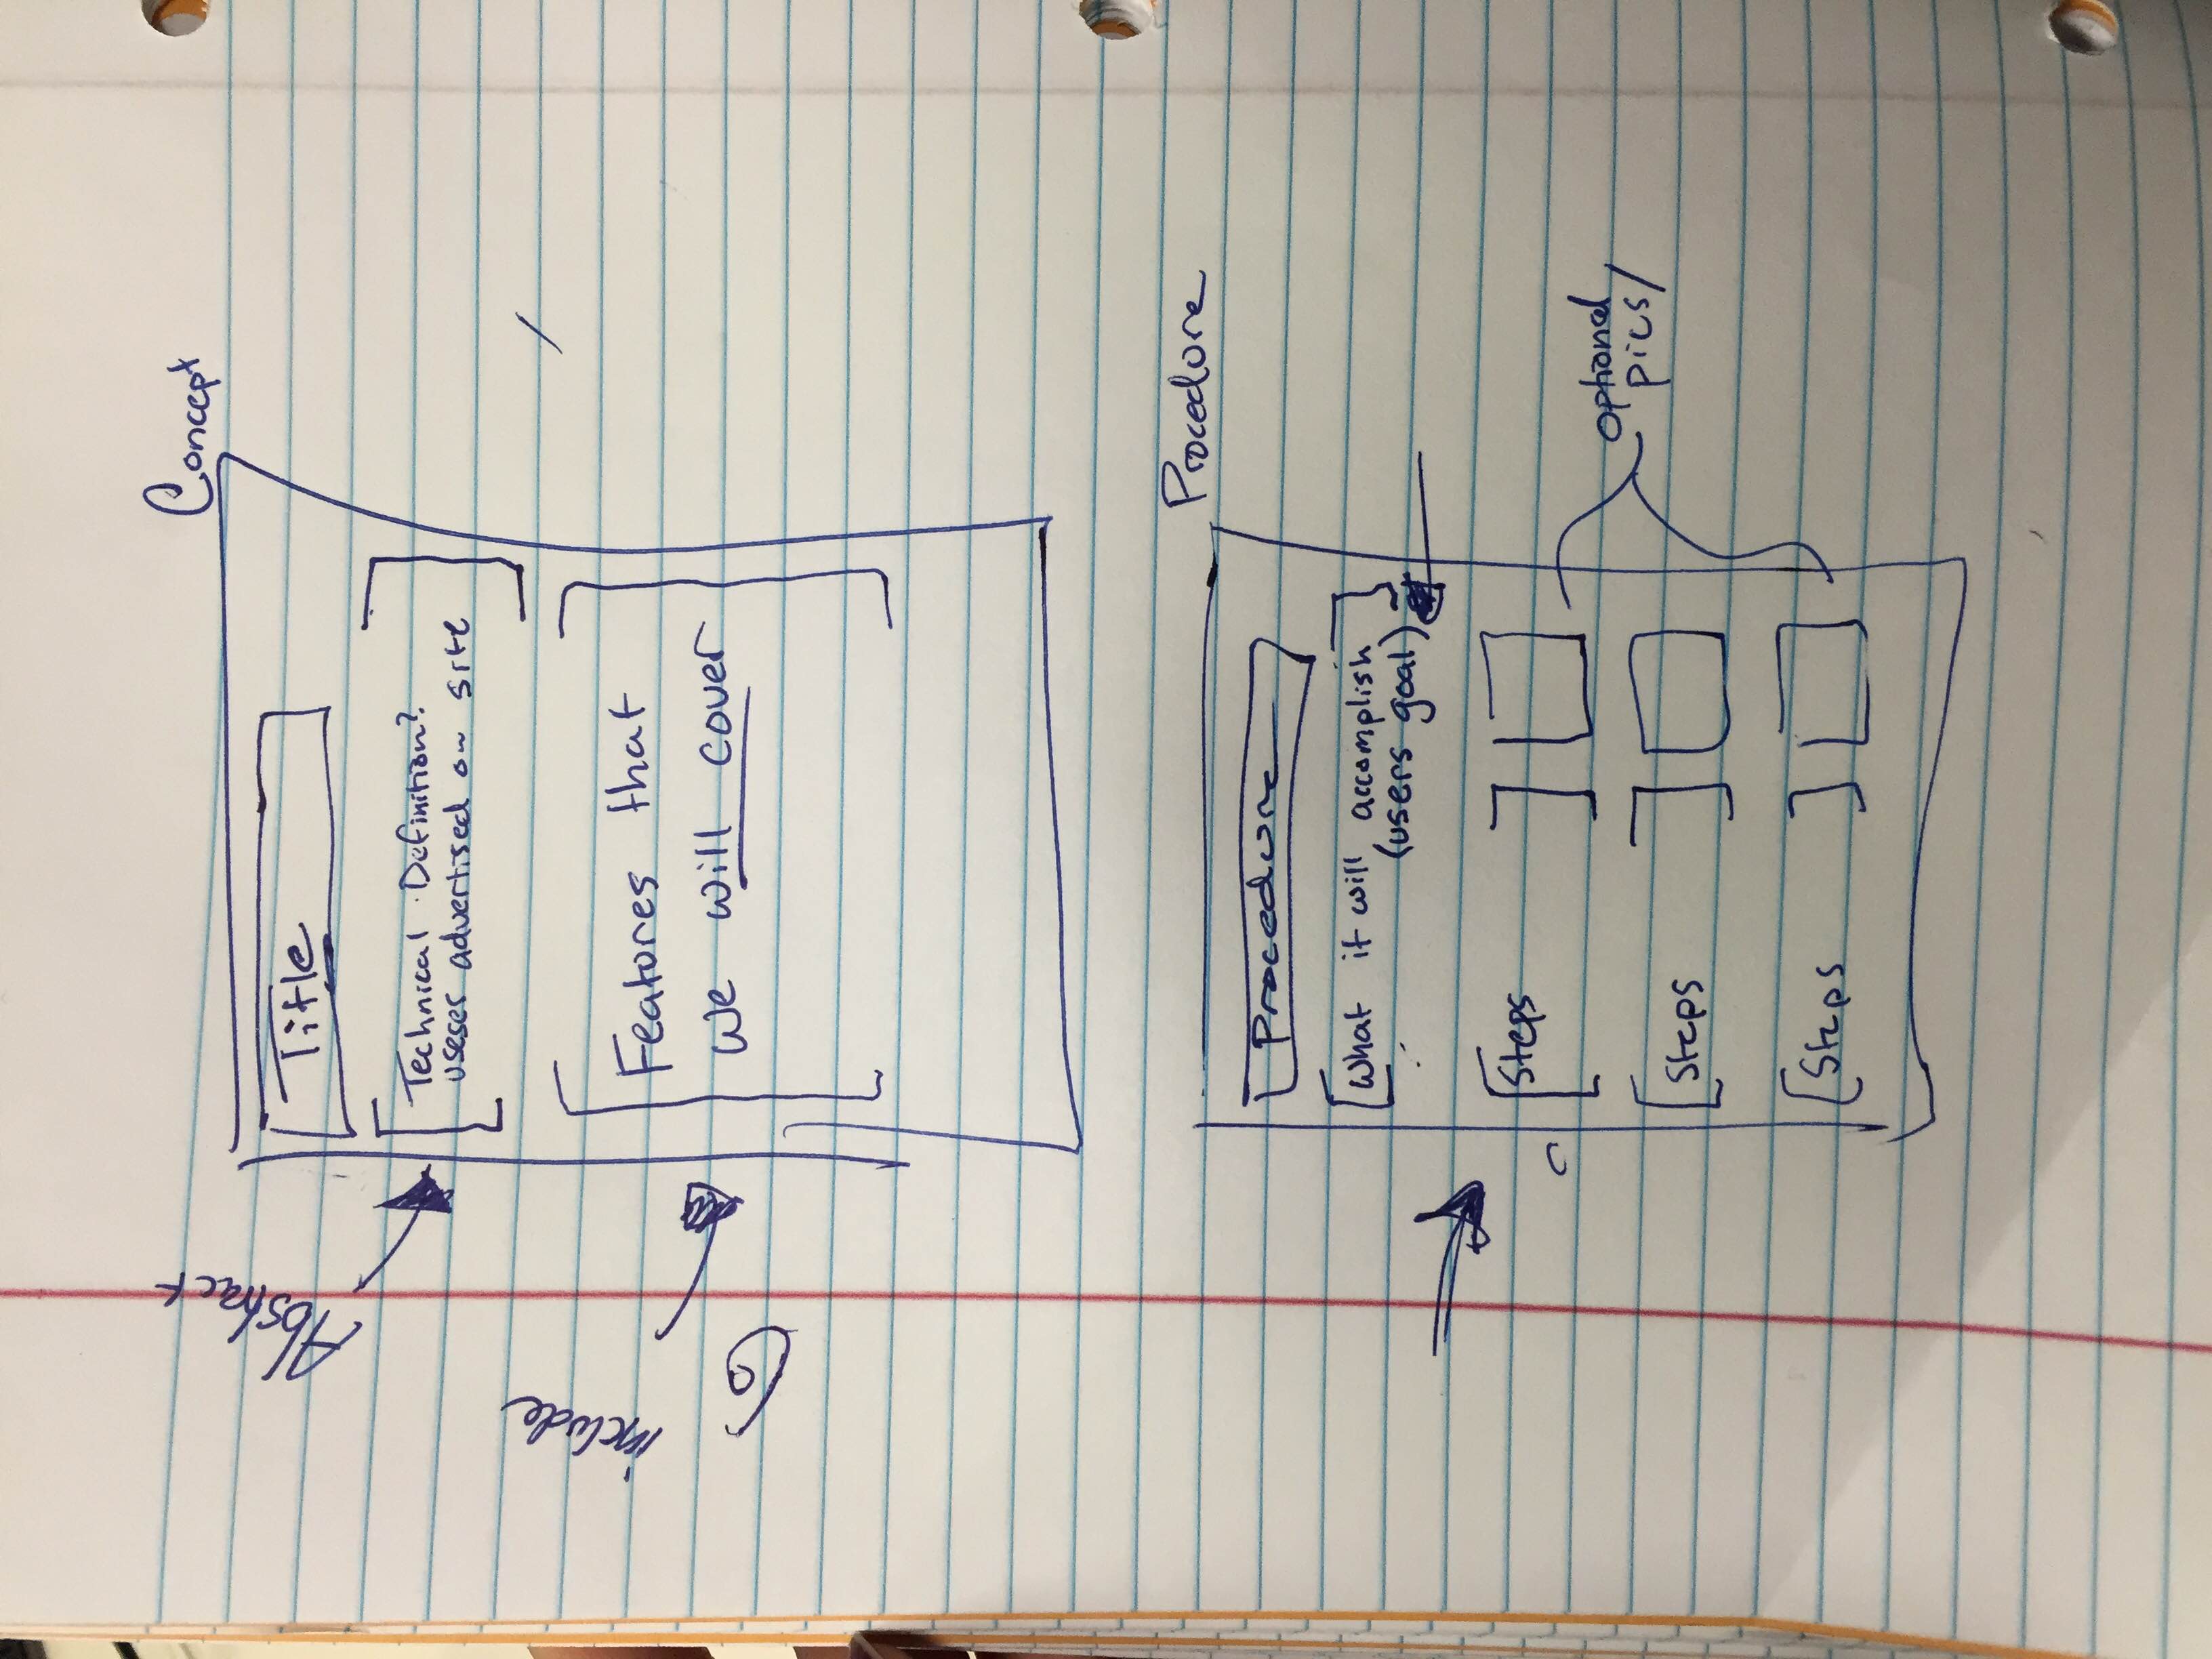 Concept
Abstract
Title
Technical Definition?
useses advertised on site
include
Features that
we will cover
Procedure
Procedure
What it will accomplish
(users goal)
Steps
Steps
Steps
optional
pics/